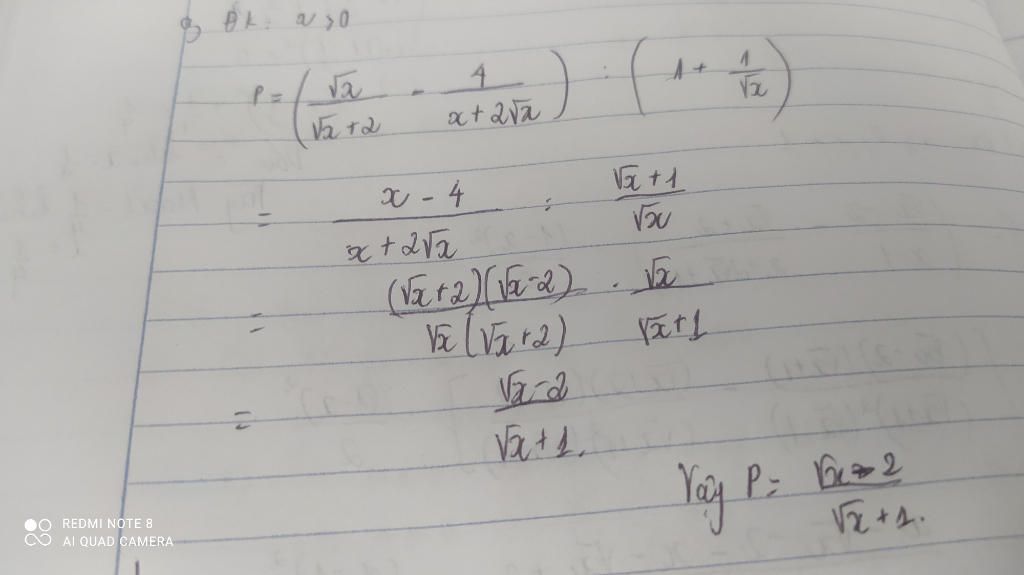 ĐK: x > 0
P = (√x/(√x+2) - 4/(x+2√x)) : (1 + 1/√x)
= (x - 4)/(x+2√x) : (√x+1)/√x
= (√x+2)(√x-2)/(√x(√x+2)) . √x/(√x+1)
= (√x-2)/(√x+1).
Vậy P = (√x-2)/(√x+1).
REDMI NOTE 8
AI QUAD CAMERA